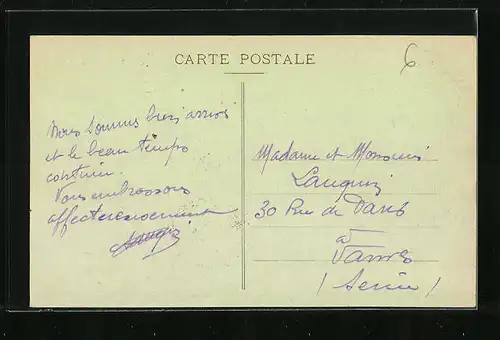 CARTE POSTALE
6
Nous sommes bien arrivés
et le beau temps
continu.
Vous embrassons
affectueusement
Madame et Monsieur
30 Rue de Paris
à
Vanves
(Seine)